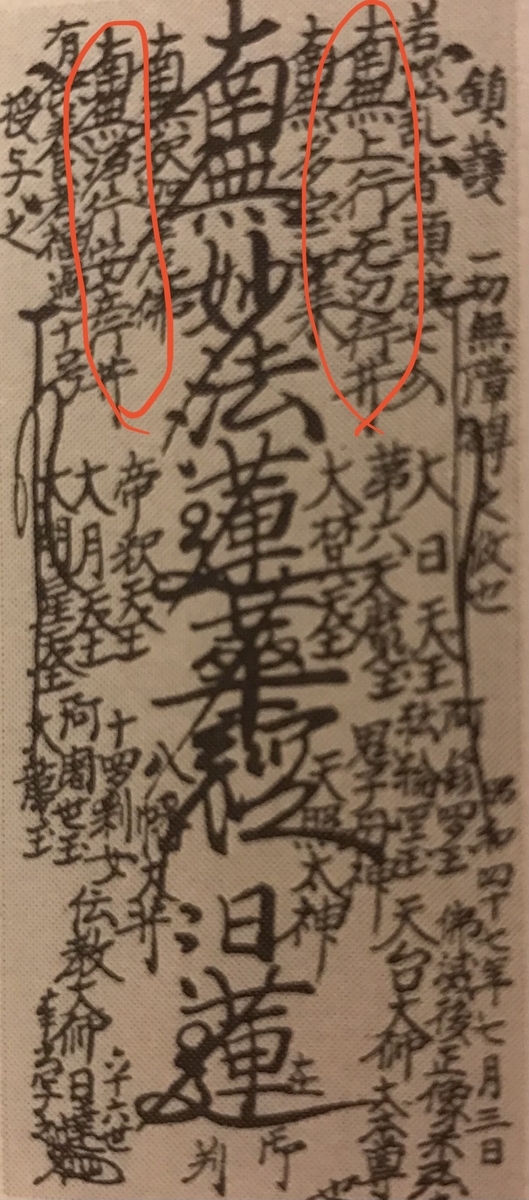 鎮護
一切無障
昭和四十七年七月三日
若悩乱者頭破七分
南無上行无辺行井
南無多宝如来
南無妙法蓮華経
南無釈迦牟尼佛
南無浄行安立行井
有供養者福過十号
授与之
大日天王
第六天魔王
大梵天王
帝釈天王
大月天王
大明星天王
阿修羅王
転輪聖王
鬼子母神
天照太神
八幡大井
十羅刹女
阿闍世王
大龍王
佛滅後
天台大師
日蓮
在御判
伝教大師
六十六世
日達